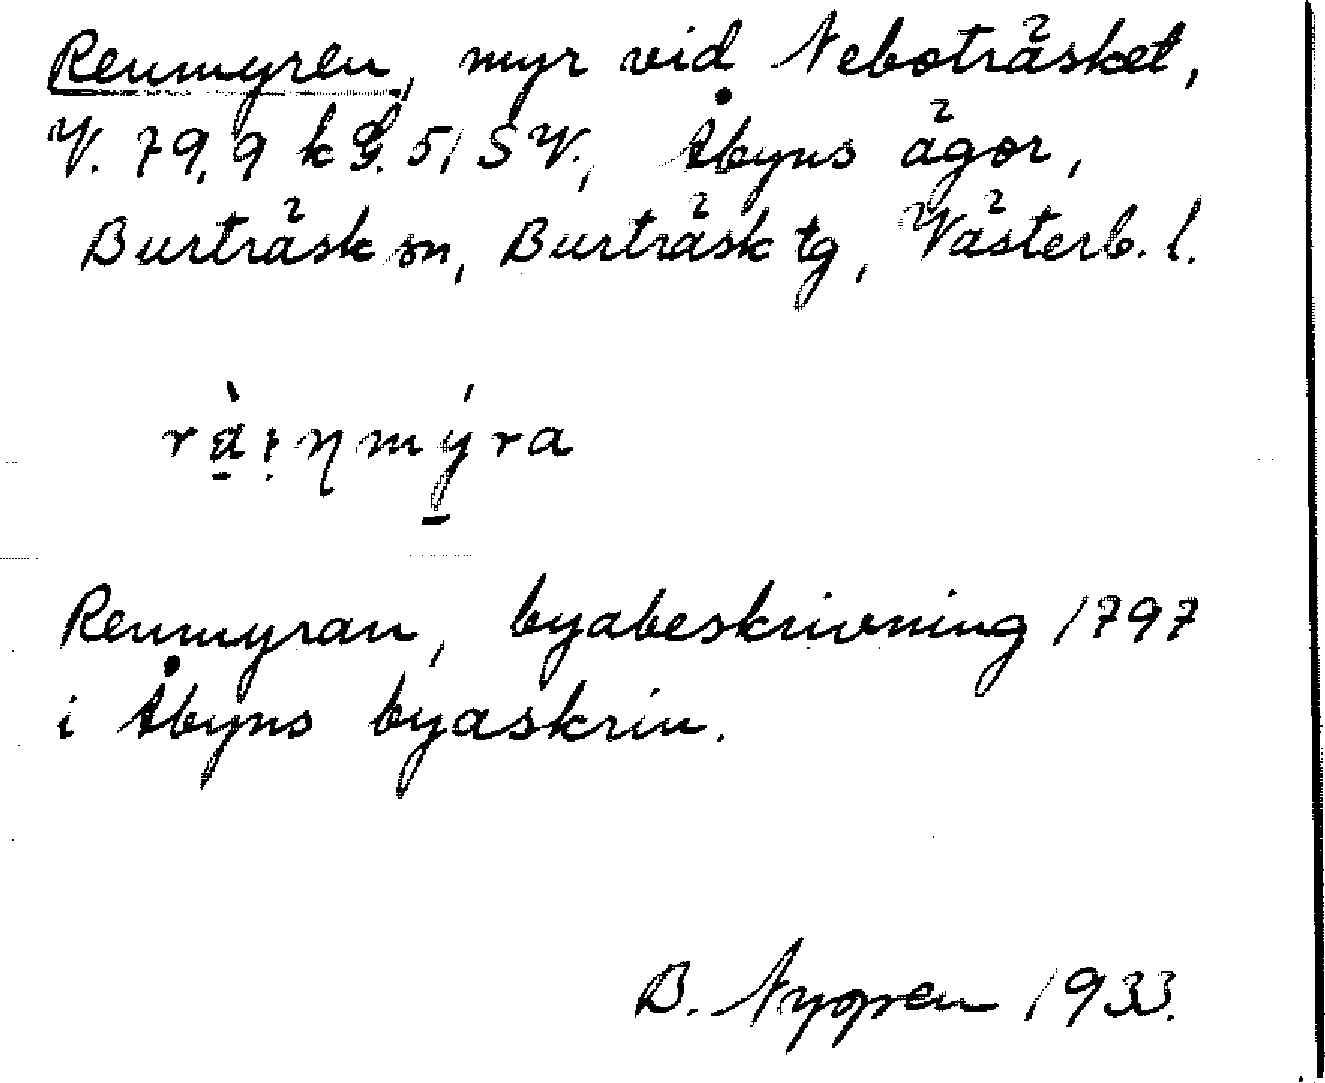 Renmyren, myr vid Neboträsket,
V. 79,9 kg. 51 SV., Åbyns ägor,
Burträsk sn, Burträsk tg, Västerb. l.
rà̱ı̣ŋmý̱ra
Renmyran, byabeskrivning 1797
i Åbyns byaskrin.
B. Nygren 1933.